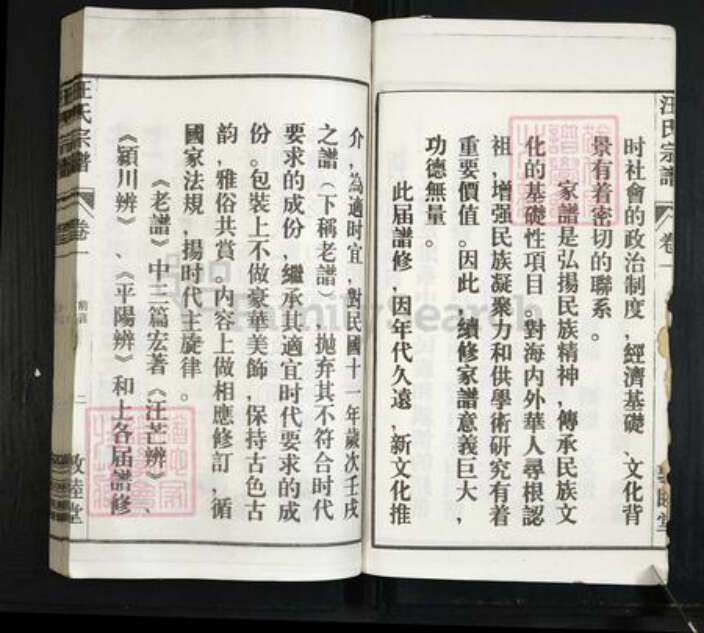 汪氏宗譜
卷一
時社會的政治制度,經濟基礎、文化背
景有着密切的聯系。
家譜是弘揚民族精神,傳承民族文
化的基礎性項目。對海内外華人尋根認
祖,增强民族凝聚力和供學術研究有着
重要價值。因此,續修家譜意義巨大,
功德無量。
此届譜修,因年代久遠,新文化推
介,為適時宜,對民國十一年歲次壬戌
之譜(下稱老譜)抛弃其不符合時代
要求的成份,繼承其適宜時代要求的成
份。包裝上不做豪華美飾,保持古色古
韵,雅俗共賞。内容上做相應修訂,循
國家法規,揚時代主旋律。
《老譜》中三篇宏著《汪芒辨》、
《潁川辨》、《平陽辨》和上各届譜修
汪氏宗譜
卷一
二
敦睦堂
FamilySearch